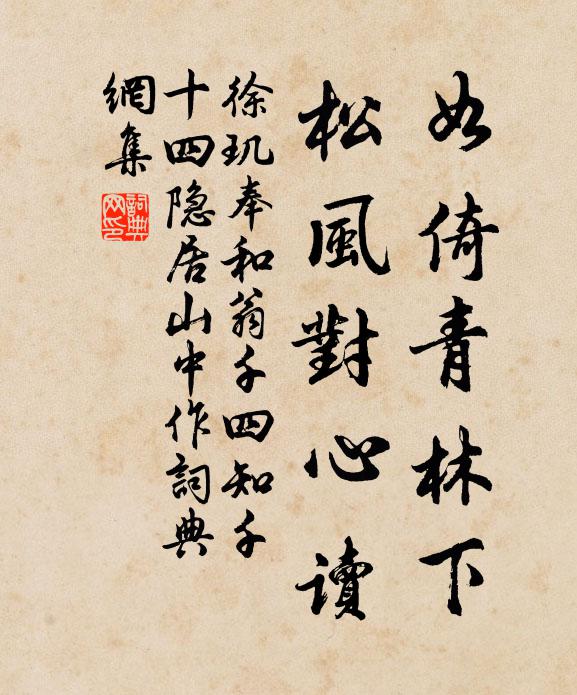 如倚青林下
松風對心讀
徐玑奉和翁千四知千
十四隐居山中作詞典
網集
詞典
网印